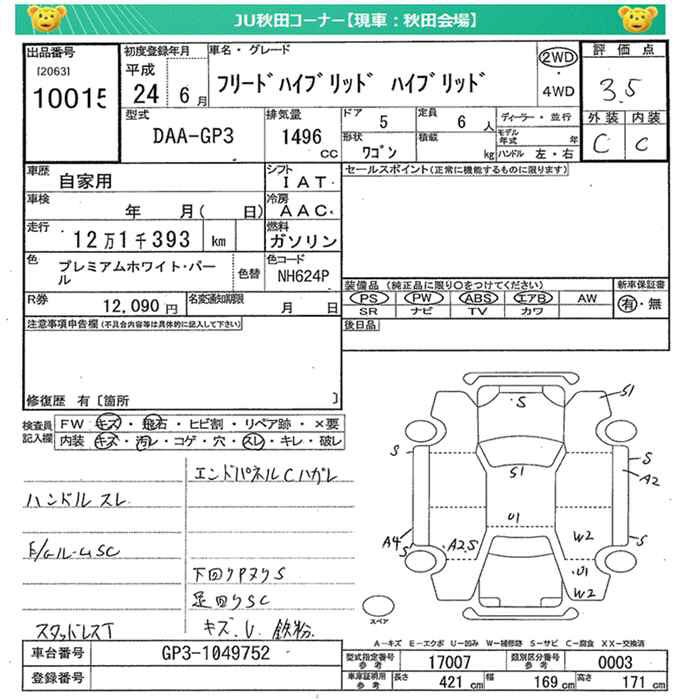 JU秋田コーナー【現車：秋田会場】
出品番号
[2063]
10015
初度登録年月
平成
24 6月
車名・グレード
フリードハイブリッド ハイブリッド
2WD
・
4WD
評価点
3.5
外装 内装
C C
型式
DAA-GP3
排気量
1496
cc
ドア
5
定員
6 人
形状
ワゴン
積載
kg
ディーラー・並行
モデル年式 年
ハンドル 左・右
車歴
自家用
シフト
IAT
車検
年 月( 日)
冷房
AAC
走行
12万1千393 km
燃料
ガソリン
色
プレミアムホワイト・パール
色替
色コード
NH624P
R券
12,090 円
名変通知期限
月 日
セールスポイント(正常に機能するものに限ります)
装備品 (純正品に限り○をつけてください)
PS PW ABS エアB AW
SR ナビ TV カワ
新車保証書
有・無
後日品
注意事項申告欄(不具合内容等は具体的に記入して下さい)
修復歴 有〔箇所 〕
検査員記入欄
FW キズ・飛石・ヒビ割・リペア跡・×要
内装 キズ・汚レ・コゲ・穴・スレ・キレ・破レ
エンドパネルCハガレ
ハンドル スレ
E/gルームSC
下回りPヌリS
足回りSC
スタッドレスT
キズ.U.鉄粉
S
S1
S
S1
S
A2
U1
W2
A4
S
A2S
S
U1
W2
スペア
A－キズ E－エクボ U－凹み W－補修跡 S－サビ C－腐食 XX－交換済
車台番号
GP3-1049752
登録番号
型式指定番号
参考
17007
類別区分番号
参考
0003
車庫証明用
参考
長さ 421 cm
幅 169 cm
高さ 171 cm